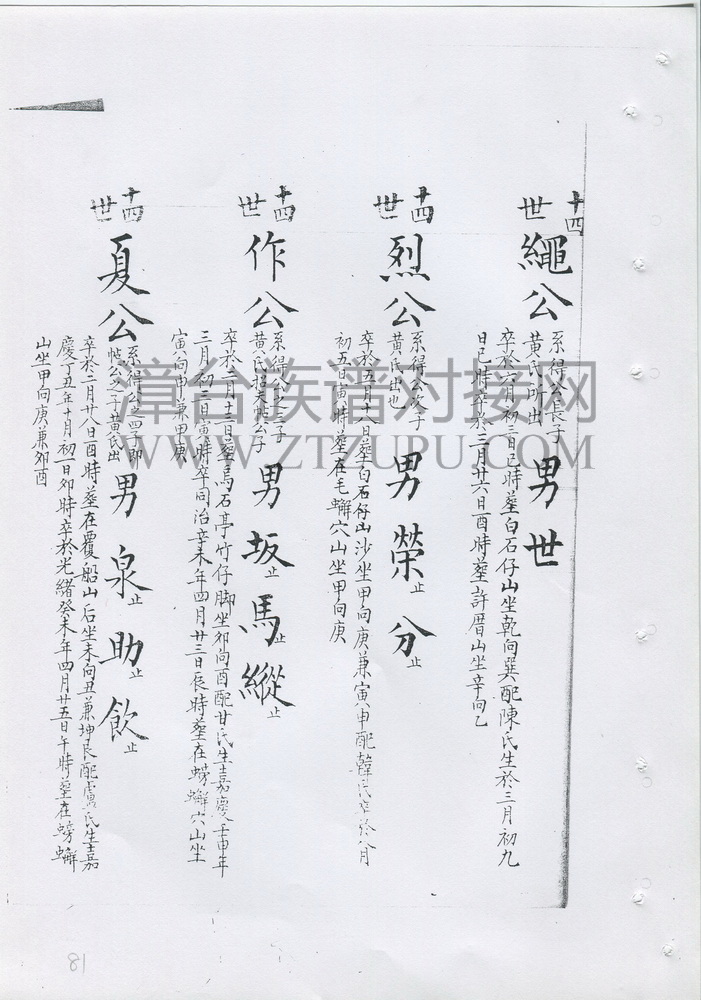 十四世
繩公
系得公長子
黃氏所出
男世
卒於六月初三日巳時塟白石仔山坐乾向巽配陳氏生於三月初九
日巳時卒於三月廿六日酉時塟許厝山坐辛向乙
十四世
烈公
系得公次子
黃氏出也
男榮止分止
卒於五月十八日塟白石仔山沙坐甲向庚兼寅申配韓氏卒於八月
初五日寅時塟在毛蠏穴山坐甲向庚
十四世
作公
系得公之三子
黃氏招夫帖公子
男坂止馬止縱止
卒於二月十三日塟烏石亭竹仔脚坐卯向酉配甘氏生嘉慶壬申年
三月初三日寅時卒同治辛未年四月廿三日辰時塟在蟧蠏穴山坐
寅向申兼甲庚
十四世
夏公
系得公之四子即
帖公之子黃氏出
男泉止助止飲止
卒於二月廿八日酉時塟在覆船山后坐未向丑兼坤艮配盧氏生嘉
慶丁丑年十月初一日卯時卒於光緒癸未年四月廿五日午時塟在蟧蠏
山坐甲向庚兼卯酉
章台族谱对接网
WWW.ZTZUPU.COM
81